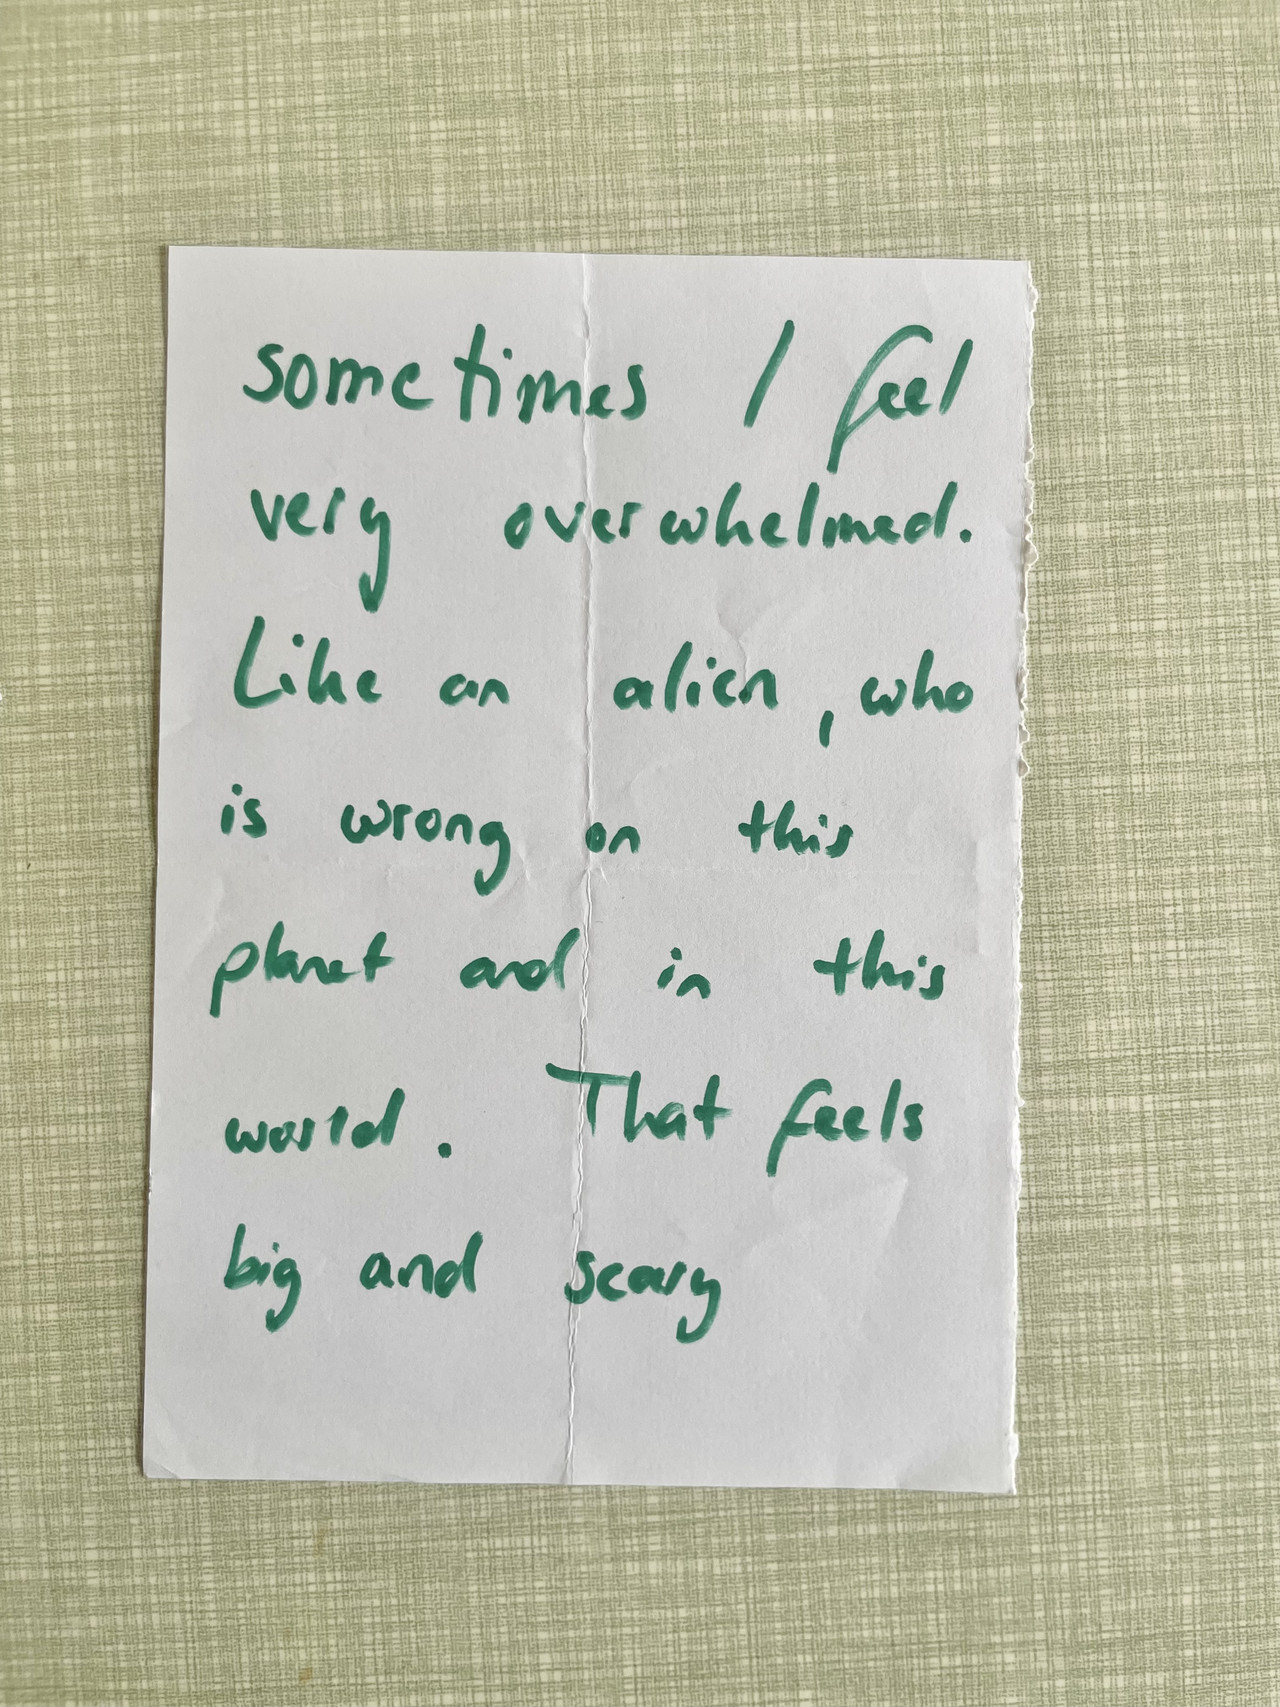 sometimes I feel
very overwhelmed.
Like an alien, who
is wrong on this
planet and in this
world. That feels
big and scary